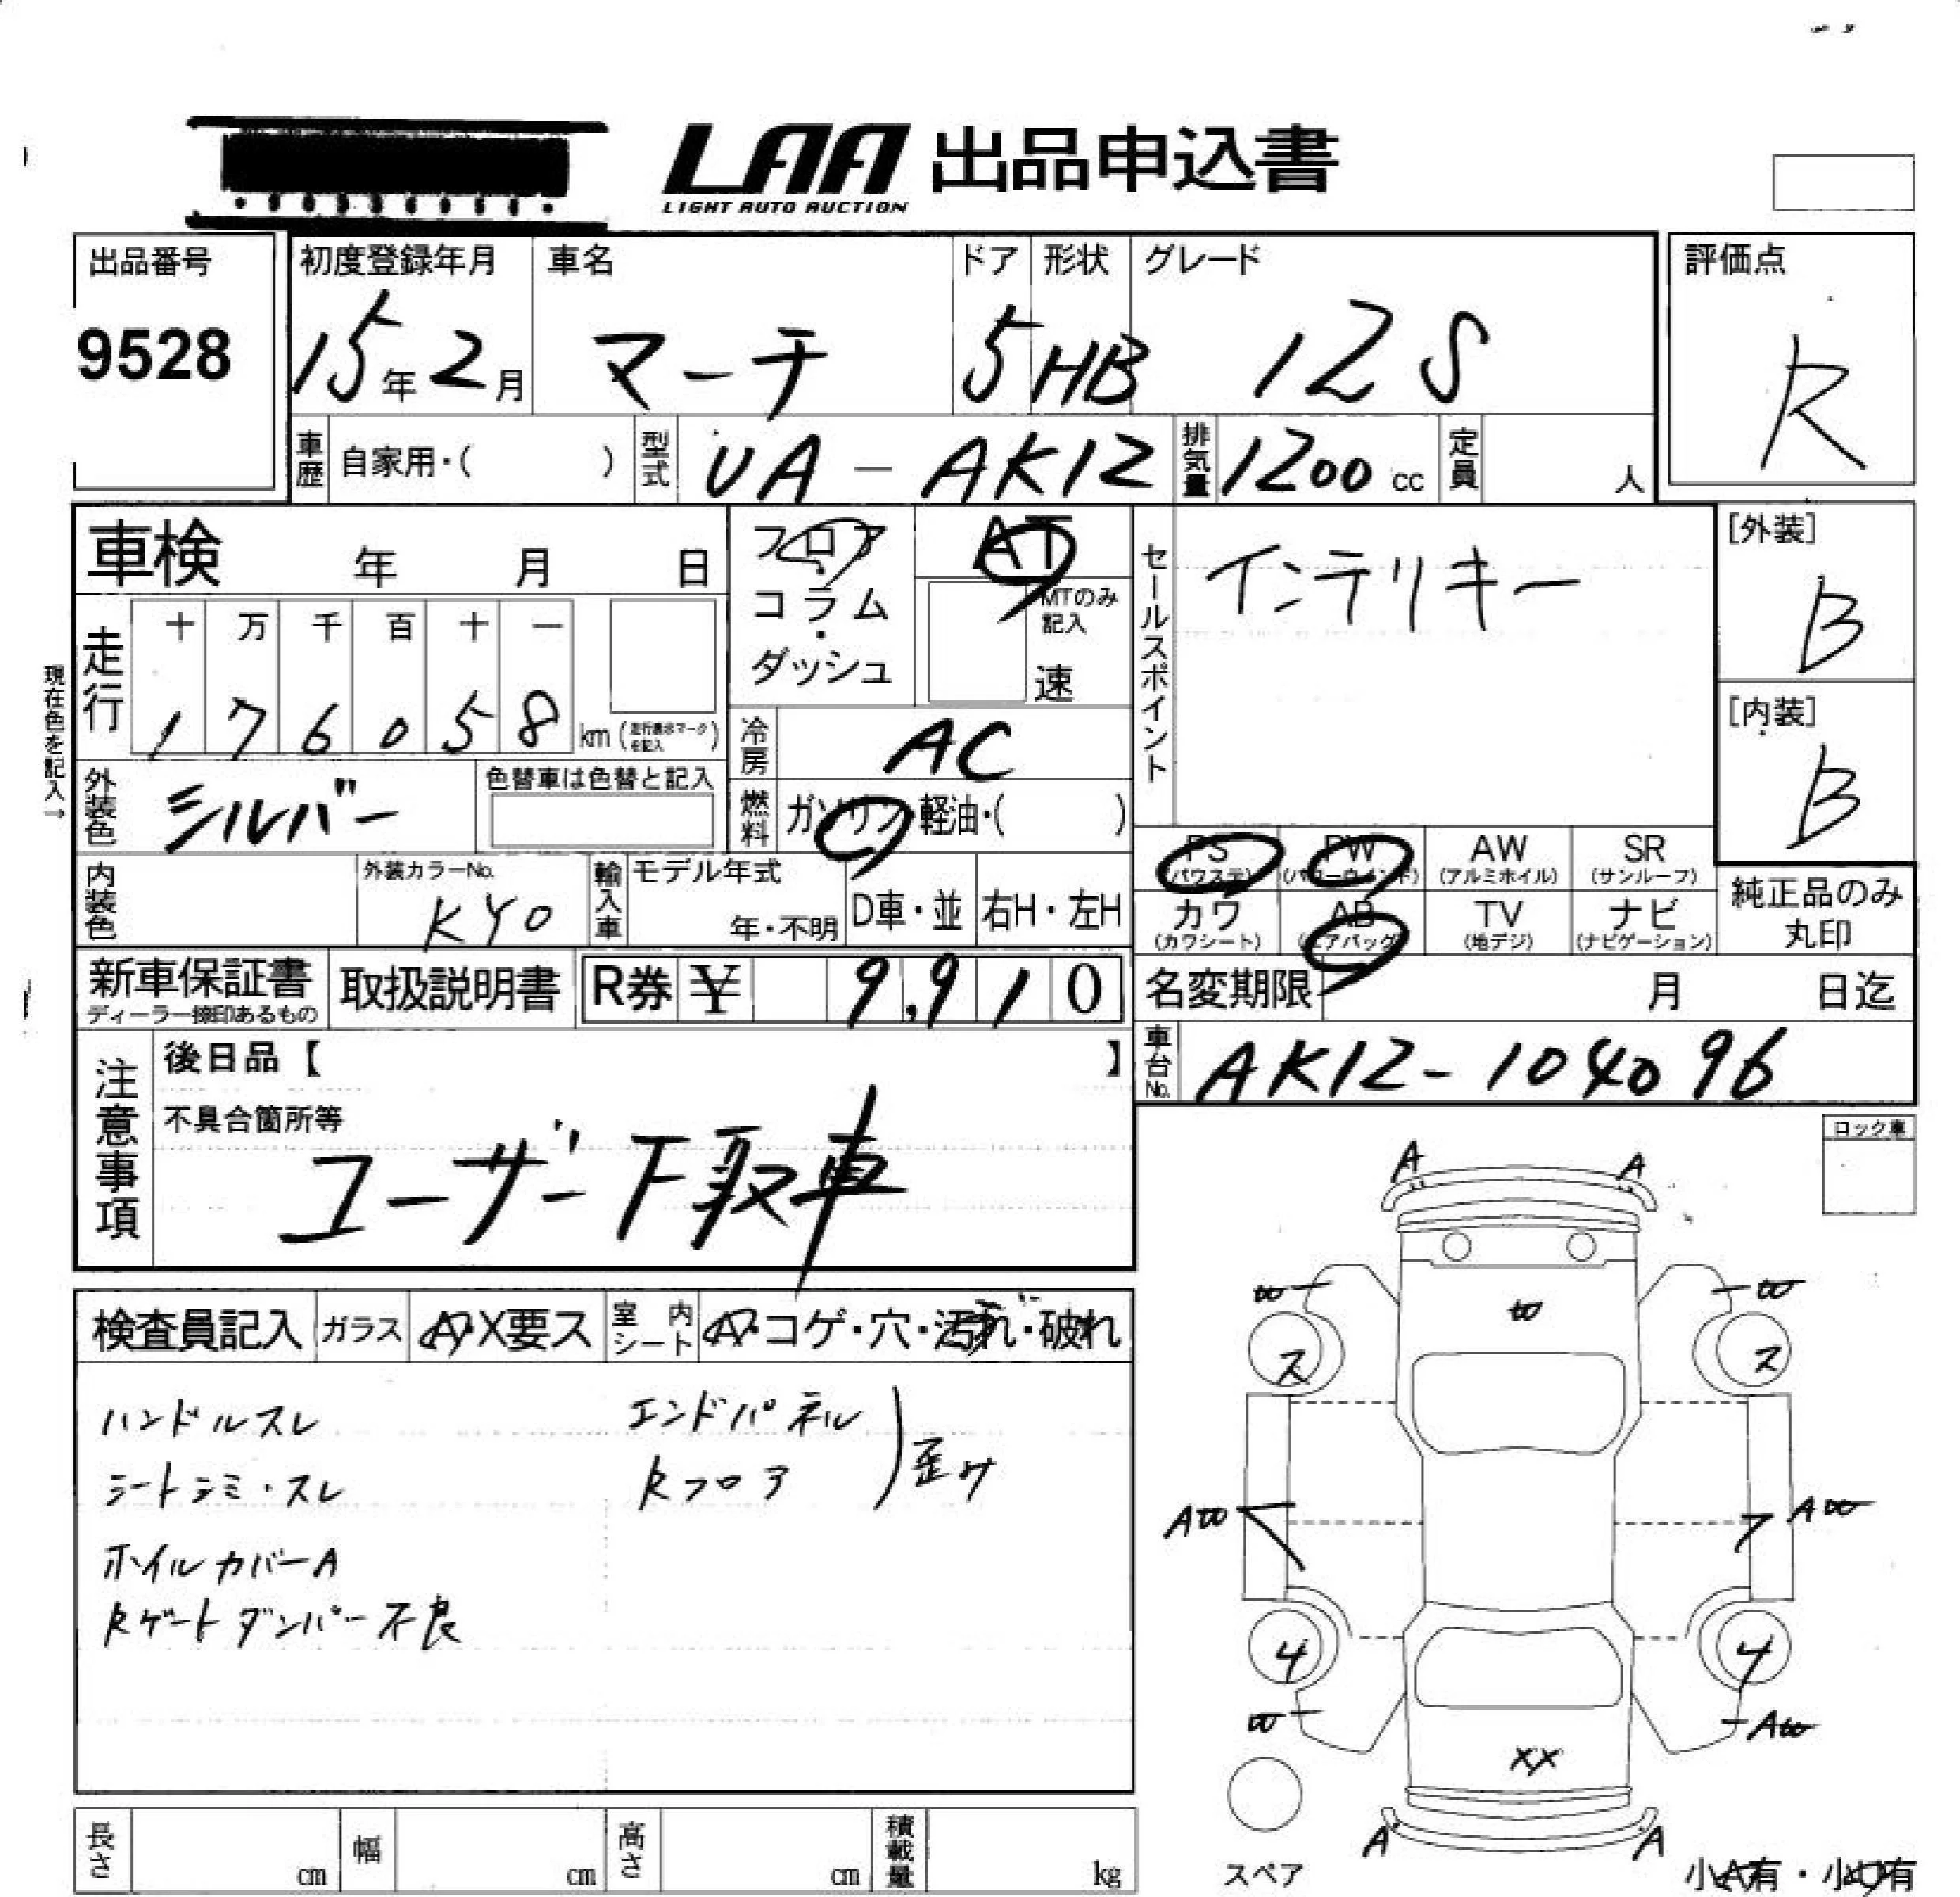 LAA 出品申込書
LIGHT AUTO AUCTION
出品番号
9528
初度登録年月
15年2月
車名
マーチ
ドア
5
形状
HB
グレード
12S
評価点
R
車歴
自家用・( )
型式
UA-AK12
排気量
1200cc
定員
人
車検 年 月 日
フロア・コラム・ダッシュ
AT
MTのみ記入
速
セールスポイント
インテリキー
[外装]
B
[内装]
B
現在色を記入→
走行
十 万 千 百 十 一
1 7 6 0 5 8 km
冷房
AC
外装色
シルバー
色替車は色替と記入
燃料
ガソリン・軽油・( )
PS AW SR
PW
(パワステ) (パワーウインド) (アルミホイル) (サンルーフ)
カワ AB TV ナビ
(カワシート) (エアバッグ) (地デジ) (ナビゲーション)
純正品のみ
丸印
内装色
外装カラーNo.
KY0
輸入車
モデル年式
年・不明
D車・並
右H・左H
新車保証書
ディーラー捺印あるもの
取扱説明書
R券 ¥ 9,910
名変期限 月 日迄
車台No.
AK12-104096
注意事項
後日品【 】
不具合箇所等
ユーザー下取車
ロック車
検査員記入
ガラス
A・X要ス
室内シート
A・コゲ・穴・汚れ・破れ
ハンドルスレ
シートシミ・スレ
ホイルカバーA
Rゲートダンパー不良
エンドパネル
Rフロア
歪み
A A
W W W
ス ス
AW AW
4 4
W AW
XX
A A
スペア
長さ cm
幅 cm
高さ cm
積載量 kg